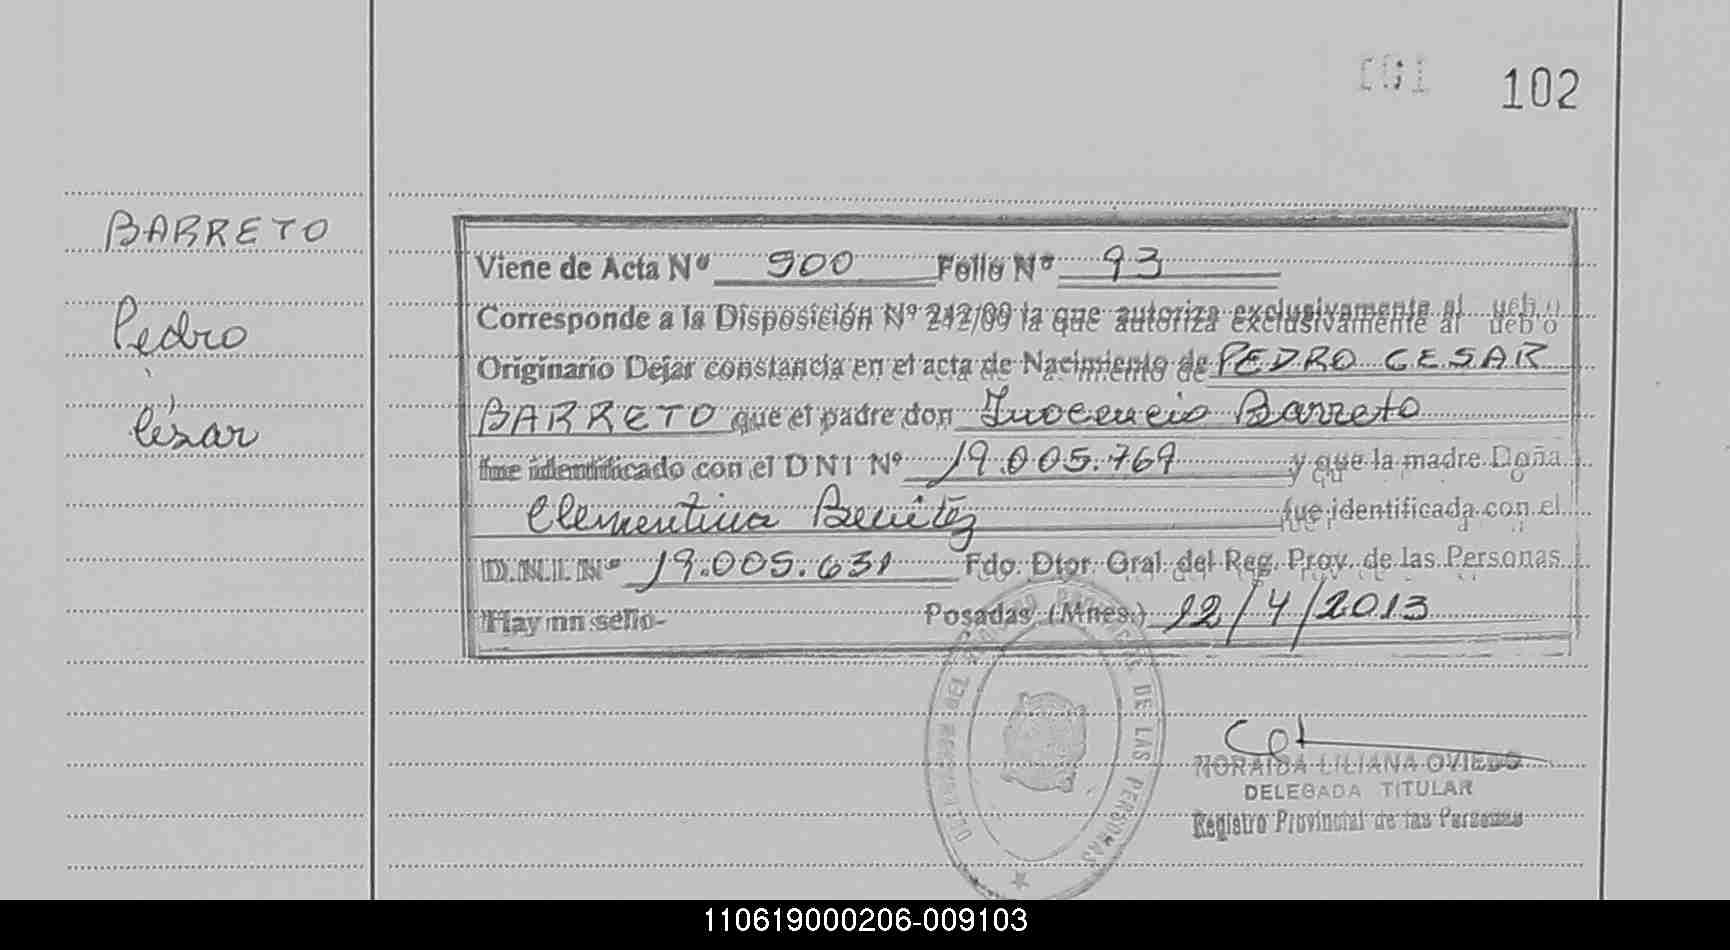 001 102
BARRETO
Pedro
César
Viene de Acta Nº 900 Folio Nº 93
Corresponde a la Disposición Nº 242/09 la que autoriza exclusivamente al
Originario Dejar constancia en el acta de Nacimiento de PEDRO CESAR
BARRETO que el padre don Inocencio Barreto
fue identificado con el DNI Nº 19.005.769 y que la madre Doña
Clementina Benitez fue identificada con el
D.N.I. Nº 19.005.631 Fdo. Dtor. Gral. del Reg. Prov. de las Personas
Hay un sello- Posadas (Mnes.) 12/4/2013
REGISTRO PROVINCIAL DE LAS PERSONAS
NORAIDA LILIANA OVIEDO
DELEGADA TITULAR
Registro Provincial de las Personas
110619000206-009103